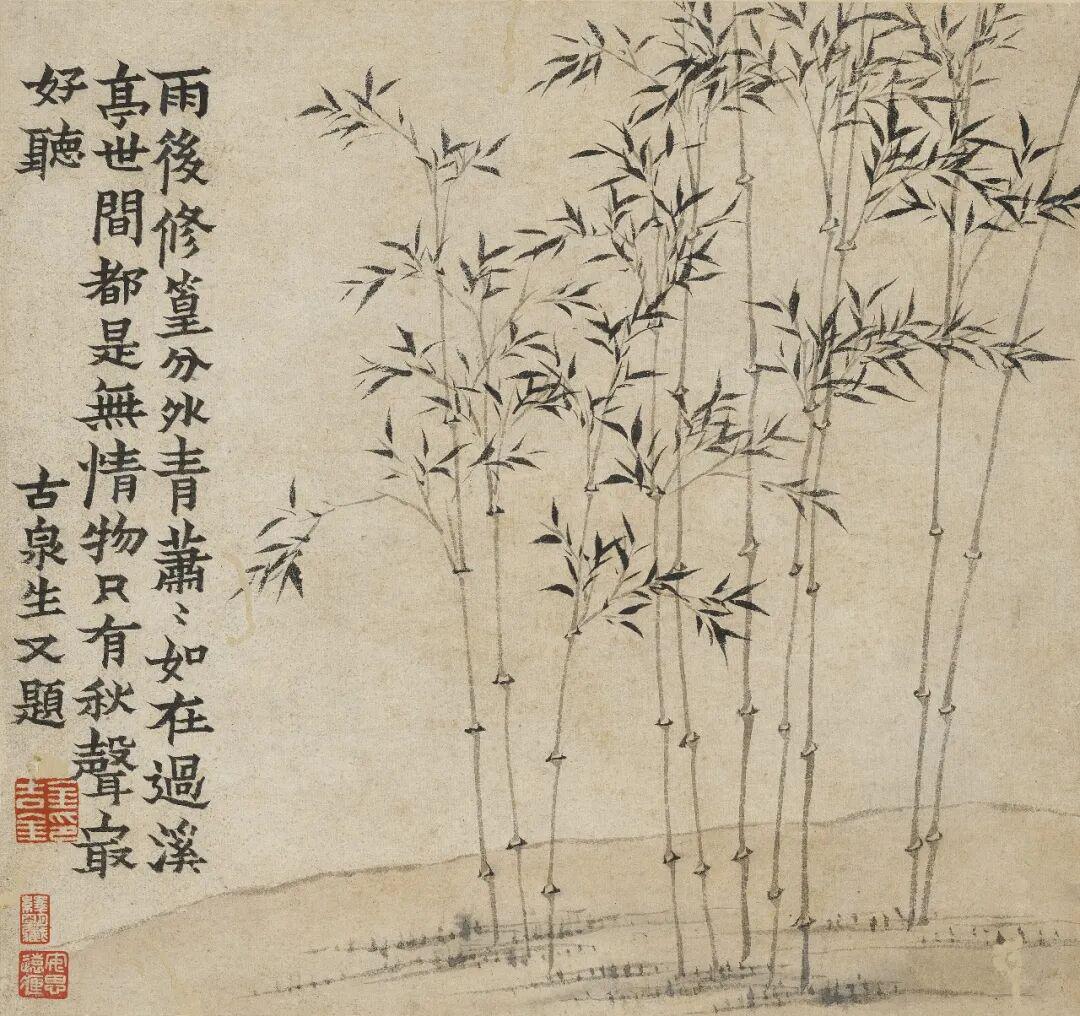 雨後修篁分外青蕭〻如在過溪
亭世間都是無情物只有秋聲㝡
好聽
古泉生又題